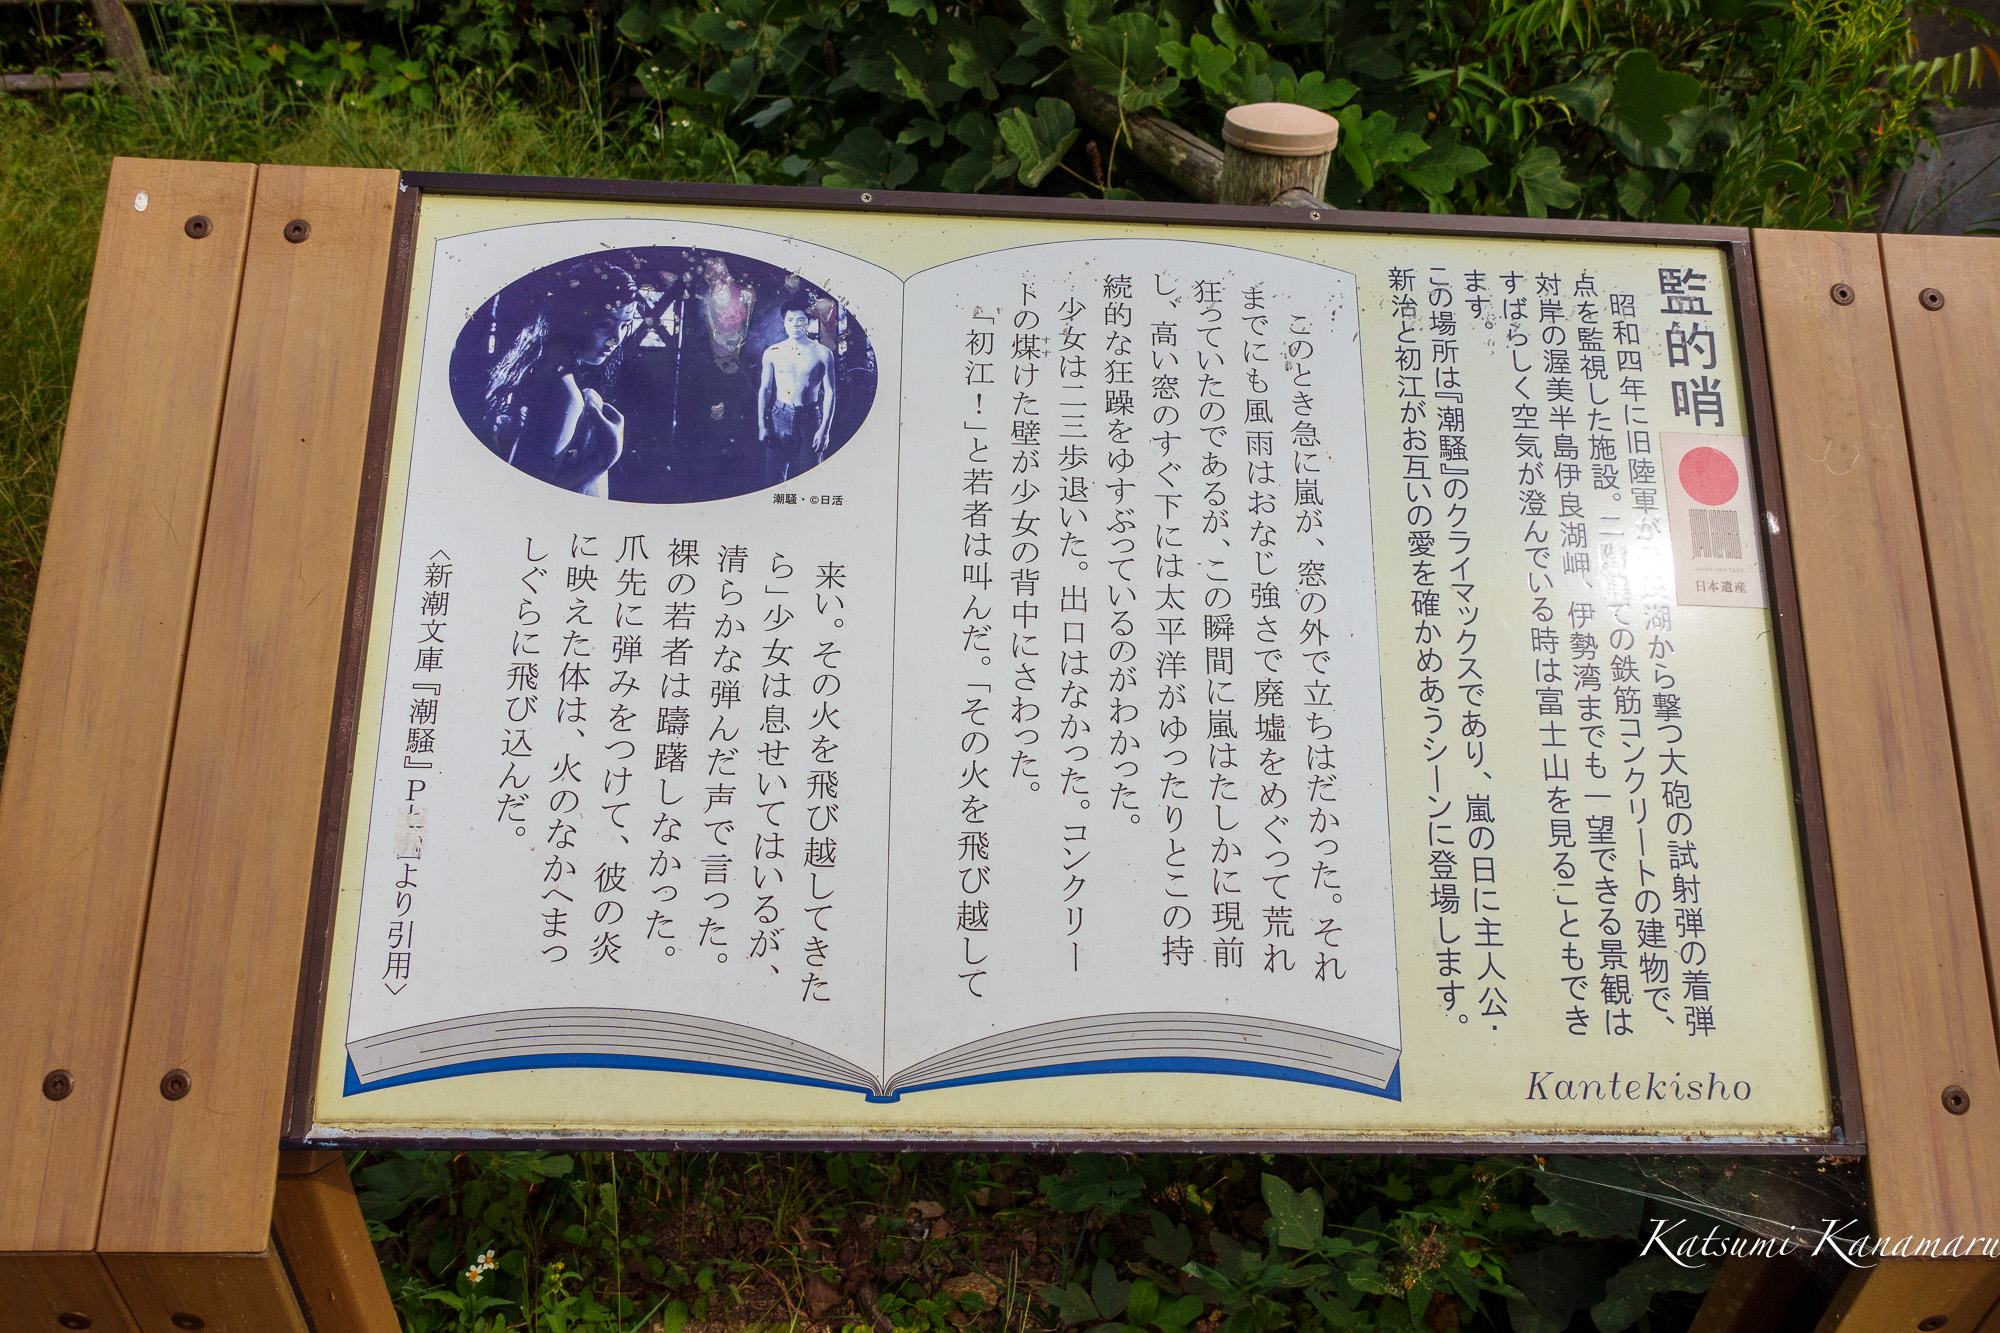 監的哨
JAPAN HERITAGE
日本遺産
昭和四年に旧陸軍が 湖から撃つ大砲の試射弾の着弾
点を監視した施設。二 ての鉄筋コンクリートの建物で、
対岸の渥美半島伊良湖岬、伊勢湾までも一望できる景観は
すばらしく空気が澄んでいる時は富士山を見ることもでき
ます。
この場所は『潮騒』のクライマックスであり、嵐の日に主人公・
新治と初江がお互いの愛を確かめあうシーンに登場します。
Kantekisho
このとき急に嵐が、窓の外で立ちはだかった。それ
までにも風雨はおなじ強さで廃墟をめぐって荒れ
狂っていたのであるが、この瞬間に嵐はたしかに現前
し、高い窓のすぐ下には太平洋がゆったりとこの持
続的な狂躁をゆすぶっているのがわかった。
少女は二三歩退いた。出口はなかった。コンクリー
トの煤けた壁が少女の背中にさわった。
すす
『初江！」と若者は叫んだ。「その火を飛び越して
来い。その火を飛び越してきた
ら」少女は息せいてはいるが、
清らかな弾んだ声で言った。
裸の若者は躊躇しなかった。
爪先に弾みをつけて、彼の炎
に映えた体は、火のなかへまっ
しぐらに飛び込んだ。
〈新潮文庫『潮騒』P より引用〉
潮騒・©日活
Katsumi Kanamaru